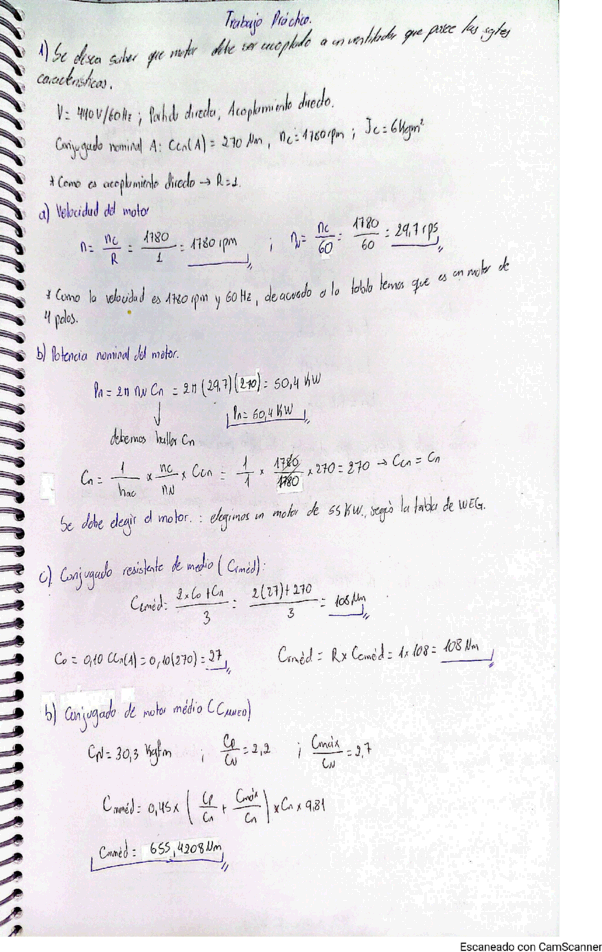 Trabajo Práctico.
1) Se desea saber que motor debe ser acoplado a un ventilador que posee las sgtes
características.
V= 440V/60Hz ; Partida directa, Acoplamiento directo.
Conjugado nominal A: Ccn(1) = 270 Nm, nc=1780rpm ; Jc=6Kgm²
* Como es acoplamiento directo → R=1.
a) Velocidad del motor
n= nc/R = 1780/1 = 1780 rpm ; nN= nc/60 = 1780/60 = 29,7 rps
* Como la velocidad es 1780 rpm y 60 Hz, de acuerdo a la tabla temos que es un motor de
4 polos.
b) Potencia nominal del motor.
Pn= 2π nN Cn = 2π (29,7)(270) = 50,4 KW
Pn= 50,4 KW
debemos hallar Cn
Cn = 1/nac × nc/nN × Ccn = 1/1 × 1780/1780 × 270 = 270 → Ccn = Cn
Se debe elegir el motor. : elegimos un motor de 55 KW, según la tabla de WEG.
c) Conjugado resistente de medio (Crméd):
Ccméd= 2×Co+Cn/3 = 2(27)+270/3 = 108 Nm
Co = 0,10 Ccn(1) = 0,10(270) = 27 Crméd = R× Ccméd = 1×108 = 108 Nm
b) Conjugado de motor médio (CMMED)
CN= 30,3 Kgfm ; Cp/CN = 2,2 ; Cmáx/CN = 2,7
Cmméd = 0,45 × (Cp/Cn + Cmáx/Cn) × Cn × 9,81
Cmméd = 655,4208 Nm
Escaneado con CamScanner